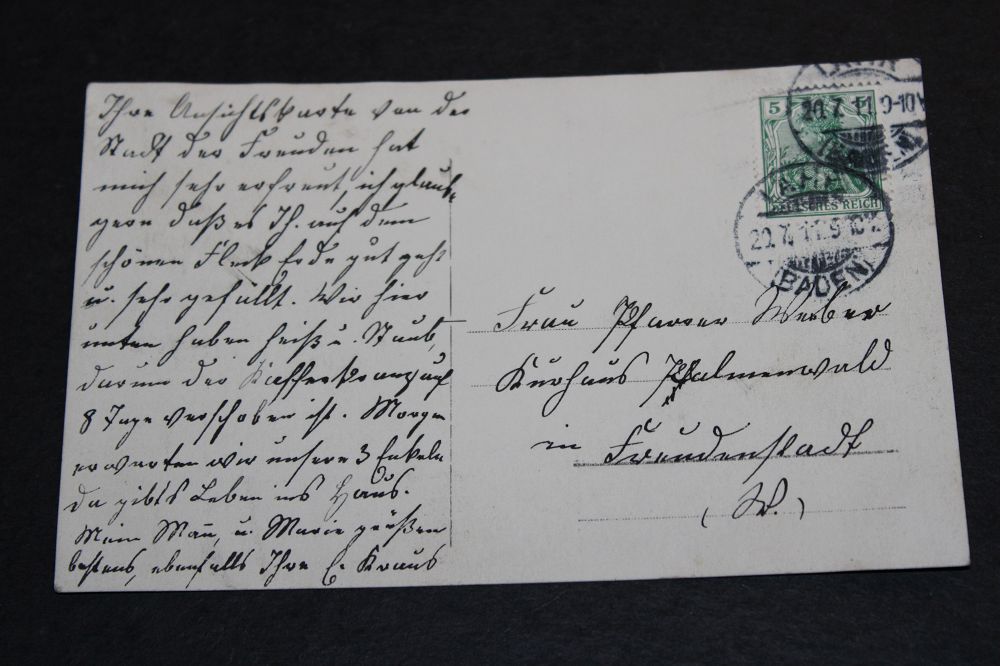 Ihre Ansichtskarte von der
Stadt der Freuden hat
mich sehr erfreut, ich glaub
gern daß es Ih. auf dem
schönen Fleck Erde gut geht
u. sehr gefällt. Wir hier
unten haben heiß u. Staub,
darum der Kaffeekranz auf
8 Tage verschoben ist. Morgen
erwarten wir unsere 3 Enkeln
da gibts Leben ins Haus.
Mein Mann, u. Marie grüßen
bestens, ebenfalls Ihre E. Kraus
5 5
DEUTSCHES REICH
LAHR
20.7.11.9-10V
(BADEN)
LAHR
20.7.11.9-10V
(BADEN)
Frau Pfarrer Weber
Kurhaus Palmenwald
in Freudenstadt
(W.)